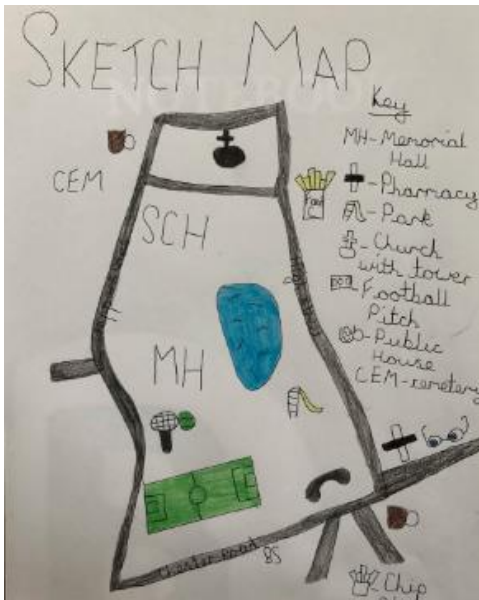 SKETCH MAP
Key
MH-Memorial
Hall
-Pharmacy
-Park
-Church
with tower
Football
Pitch
-Public
House
CEM-cemetery
CEM
SCH
MH
Road
BS
-Chip